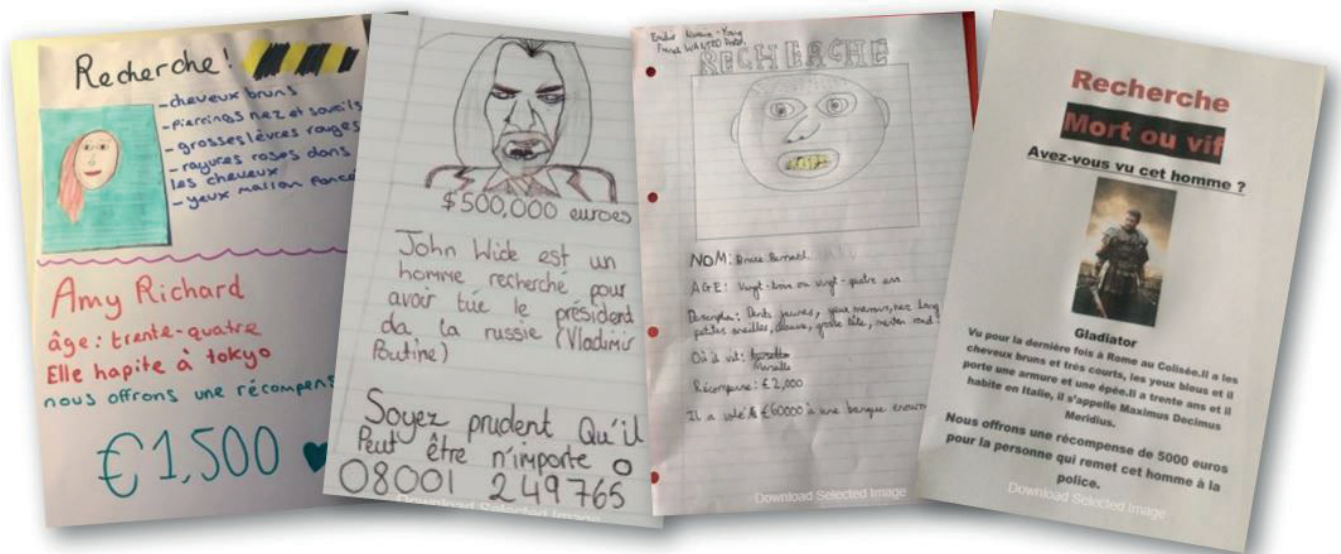 Recherche!
-cheveux bruns
-piercings nez et sourcils
-grosses lèvres rouges
-rayures roses dans
les cheveux
-yeux marron foncé
Amy Richard
âge: trente-quatre
Elle hapite à tokyo
nous offrons une récompens
€1,500
$500,000 euroes
John Wick est un
homme recherché pour
avoir tué le président
da la russie (Vladimir
Poutine)
Soyez prudent Qu'il
Peut être n'importe o
08001 249765
Download Selected Image
RECHERCHE
NOM: Bruce
AGE: Vingt-trois ou vingt-quatre ans
Dents jaunes, yeux marrons, nez long
petites oreilles, chauve, grosse tête, menton rond
Où il vit:
Marseille
Récompense: £2,000
Il a volé £60000 à une banque
Download Selected Image
Recherche
Mort ou vif
Avez-vous vu cet homme ?
Gladiator
Vu pour la dernière fois à Rome au Colisée.Il a les
cheveux bruns et très courts, les yeux bleus et il
porte une armure et une épée.Il a trente ans et il
habite en Italie, il s'appelle Maximus Decimus
Meridius.
Nous offrons une récompense de 5000 euros
pour la personne qui remet cet homme à la
police.
Download Selected Image